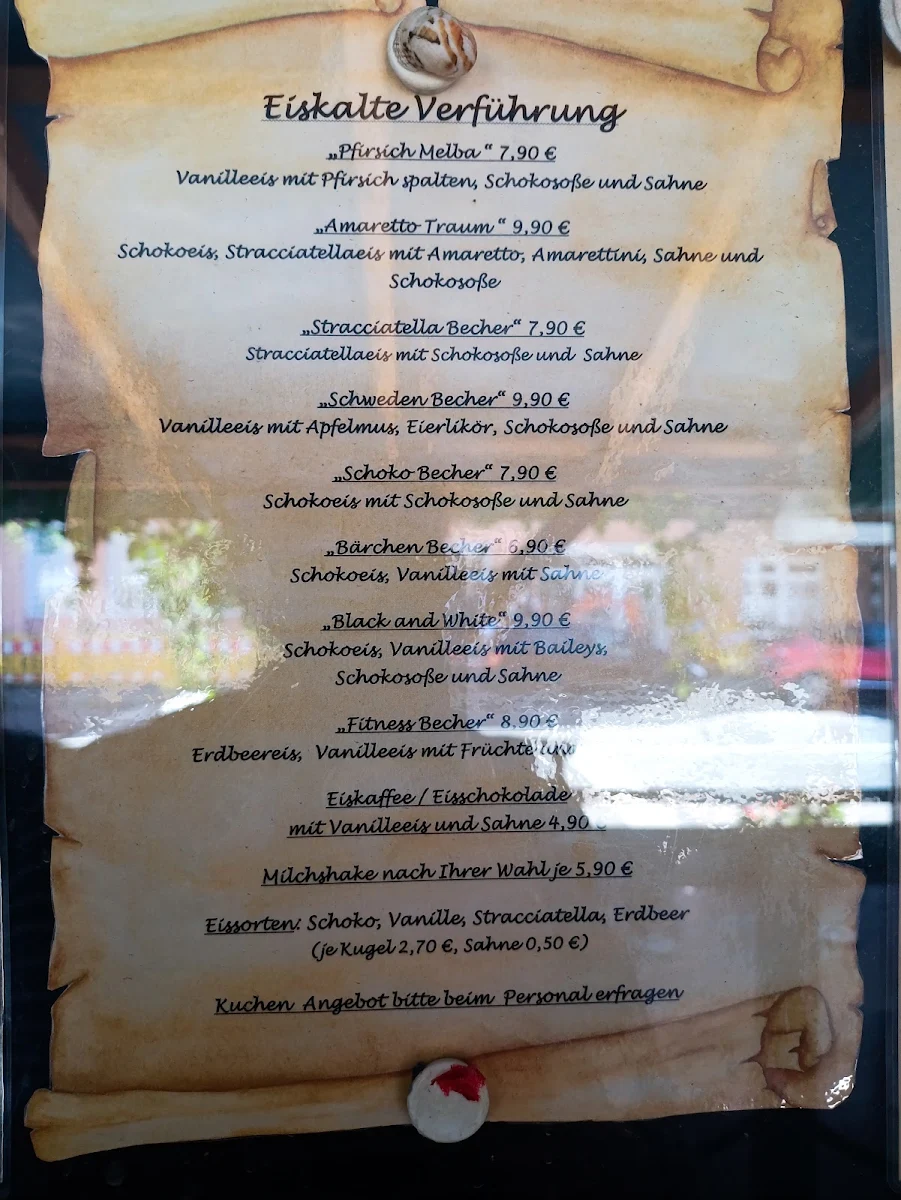 Eiskalte Verführung
„Pfirsich Melba “ 7,90 €
Vanilleeis mit Pfirsich spalten, Schokosoße und Sahne
„Amaretto Traum “ 9,90 €
Schokoeis, Stracciatellaeis mit Amaretto, Amarettini, Sahne und
Schokosoße
„Stracciatella Becher“ 7,90 €
Stracciatellaeis mit Schokosoße und Sahne
„Schweden Becher“ 9,90 €
Vanilleeis mit Apfelmus, Eierlikör, Schokosoße und Sahne
„Schoko Becher“ 7,90 €
Schokoeis mit Schokosoße und Sahne
„Bärchen Becher“ 6,90 €
Schokoeis, Vanilleeis mit Sahne
„Black and White“ 9,90 €
Schokoeis, Vanilleeis mit Baileys,
Schokosoße und Sahne
„Fitness Becher“ 8,90 €
Erdbeereis, Vanilleeis mit Früchte
Eiskaffee / Eisschokolade
mit Vanilleeis und Sahne 4,90 €
Milchshake nach Ihrer Wahl je 5,90 €
Eissorten: Schoko, Vanille, Stracciatella, Erdbeer
(je Kugel 2,70 €, Sahne 0,50 €)
Kuchen Angebot bitte beim Personal erfragen